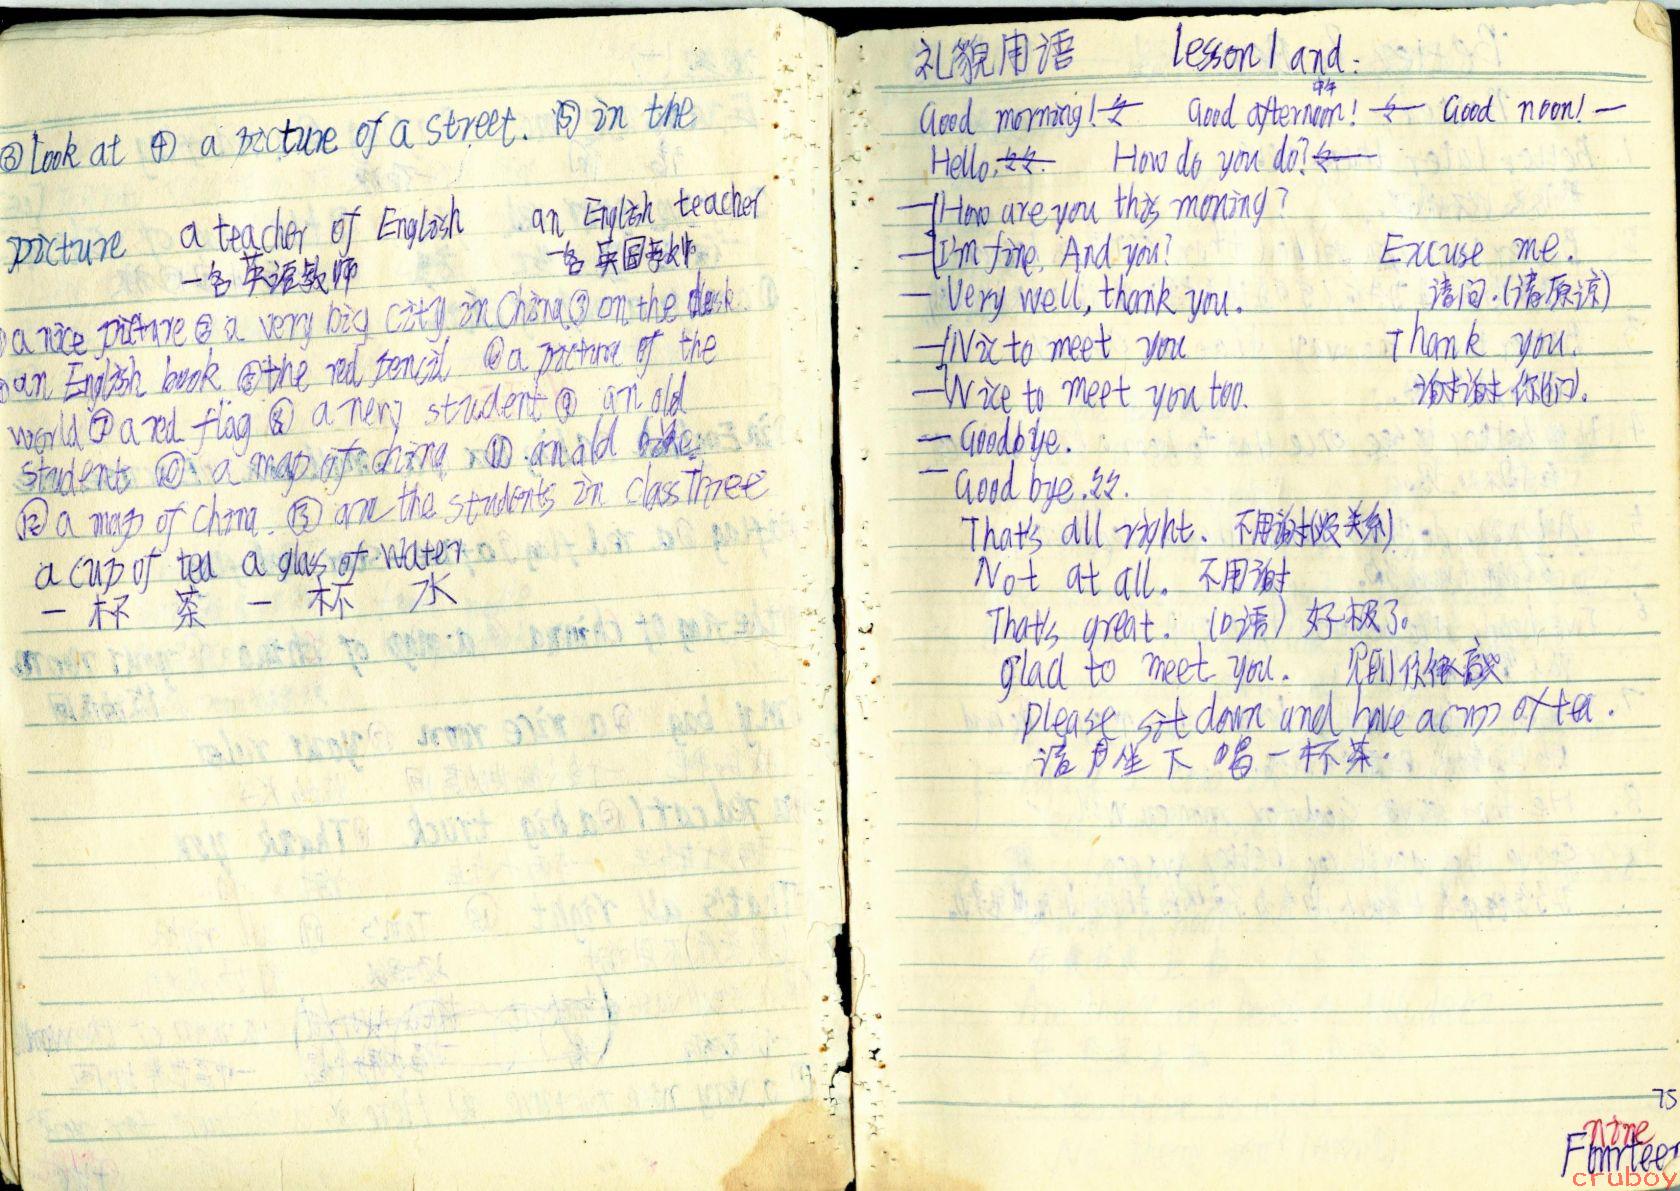 ③Look at ④ a picture of a street. ⑤ in the
picture a teacher of English an English teacher
一名英语教师 一名英国教师
①a nice picture ② a very big city in China③ on the desk.
④an English book ⑤the red pencil ⑥a picture of the
world ⑦ a red flag ⑧ a new student ⑨ an old
student ⑩ a map of china ⑪ an old bike
⑫ a map of China. ⑬ are the students in class Three
a cup of tea a glass of water
一 杯 茶 一 杯 水
礼貌用语 lesson 1 and:
中午
Good morning! Good afternoon! Good noon! —
Hello. How do you do?
—How are you this moning?
—I'm fine. And you? Excuse me.
— Very well, thank you. 请问.(请原谅)
—Nice to meet you Thank you.
—Nice to meet you too. 谢谢你(们).
— Goodbye.
— Good bye.
That's all right. 不用谢(没关系)
Not at all. 不用谢
That's great. (口语) 好极了。
glad to meet you. 见到你很高兴
Please sit down and have a cup of tea.
请 坐 下 喝 一 杯 茶.
75
nine
Fourteen
cruboy